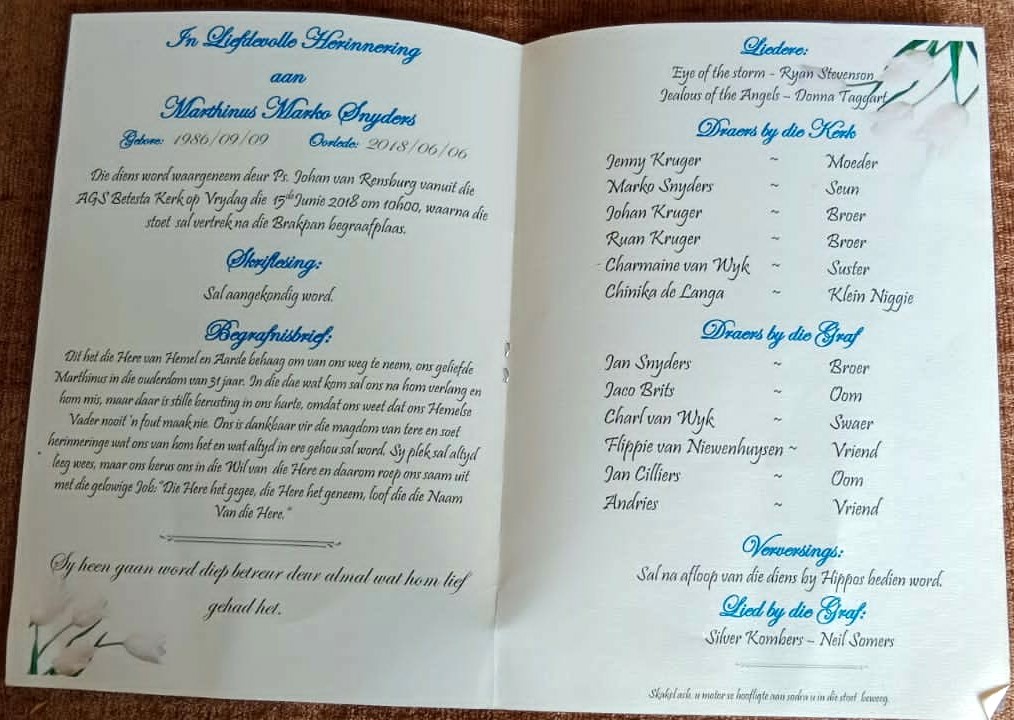 In Liefdevolle Herinnering
aan
Marthinus Marko Snyders
Gebore: 1986/09/09 Oorlede: 2018/06/06
Die diens word waargeneem deur Ps. Johan van Rensburg vanuit die
AGS Betesta Kerk op Vrydag die 15de Junie 2018 om 10h00, waarna die
stoet sal vertrek na die Brakpan begraafplaas.
Skriflesing:
Sal aangekondig word.
Begrafnisbrief:
Dit het die Here van Hemel en Aarde behaag om van ons weg te neem, ons geliefde
Marthinus in die ouderdom van 31 jaar. In die dae wat kom sal ons na hom verlang en
hom mis, maar daar is stille berusting in ons harte, omdat ons weet dat ons Hemelse
Vader nooit 'n fout maak nie. Ons is dankbaar vir die magdom van tere en soet
herinneringe wat ons van hom het en wat altyd in ere gehou sal word. Sy plek sal altyd
leeg wees, maar ons berus ons in die Wil van die Here en daarom roep ons saam uit
met die gelowige Job: "Die Here het gegee, die Here het geneem, loof die die Naam
Van die Here."
Sy heen gaan word diep betreur deur almal wat hom lief
gehad het.
Liedere:
Eye of the storm - Ryan Stevenson
Jealous of the Angels – Donna Taggart
Draers by die Kerk
Jenny Kruger ~ Moeder
Marko Snyders ~ Seun
Johan Kruger ~ Broer
Ruan Kruger ~ Broer
Charmaine van Wyk ~ Suster
Chinika de Langa ~ Klein Niggie
Draers by die Graf
Jan Snyders ~ Broer
Jaco Brits ~ Oom
Charl van Wyk ~ Swaer
Flippie van Niewenhuysen ~ Vriend
Jan Cilliers ~ Oom
Andries ~ Vriend
Verversings:
Sal na afloop van die diens by Hippos bedien word.
Lied by die Graf:
Silver Kombers – Neil Somers
Skakel asb. u motor se hoofligte aan sodra u in die stoet beweeg.